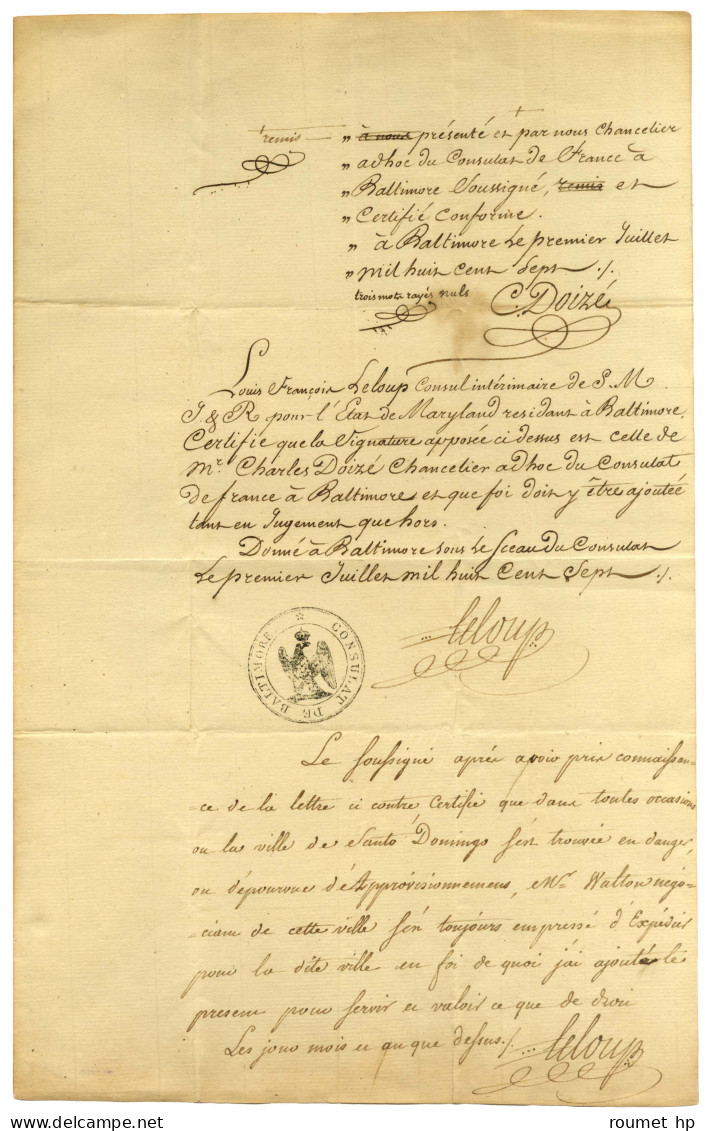 remis
" ~~à nous~~ présenté et par nous Chancelier
" adhoc du Consulat de France à
" Baltimore Soussigné, ~~remis~~ et
" Certifié Conforme.
" à Baltimore Le premier Juillet
" mil huit cent Sept ./.
trois mots rayés nuls C. Doizé
Louis François Leloup Consul intérimaire de S. M.
I. & R. pour l'Etat de Maryland residant à Baltimore,
Certifie que la Signature apposée ci dessus est celle de
Mr. Charles Doizé Chancelier adhoc du Consulat
de france à Baltimore et que foi doit y être ajoutée
tant en Jugement que hors.
Donné à Baltimore sous Le Sceau du Consulat
Le premier Juillet mil huit Cent Sept ./.
leloup
CONSULAT DE BALTIMORE
Le Soussigné après avoir pris connaissan-
-ce de la lettre ci contre Certifie que dans toutes occasions
ou la ville de Santo Domingo s'est trouvée en danger,
ou dépourvue d'Approvisionnemens, Mr. Walton négo-
-ciant de cette ville s'est toujours empressé d'Expédier
pour la dite ville en foi de quoi j'ai ajouté le
present pour servir et valoir ce que de droit
Les jour mois et an que dessus ./. leloup
www.delcampe.net
roumet hp